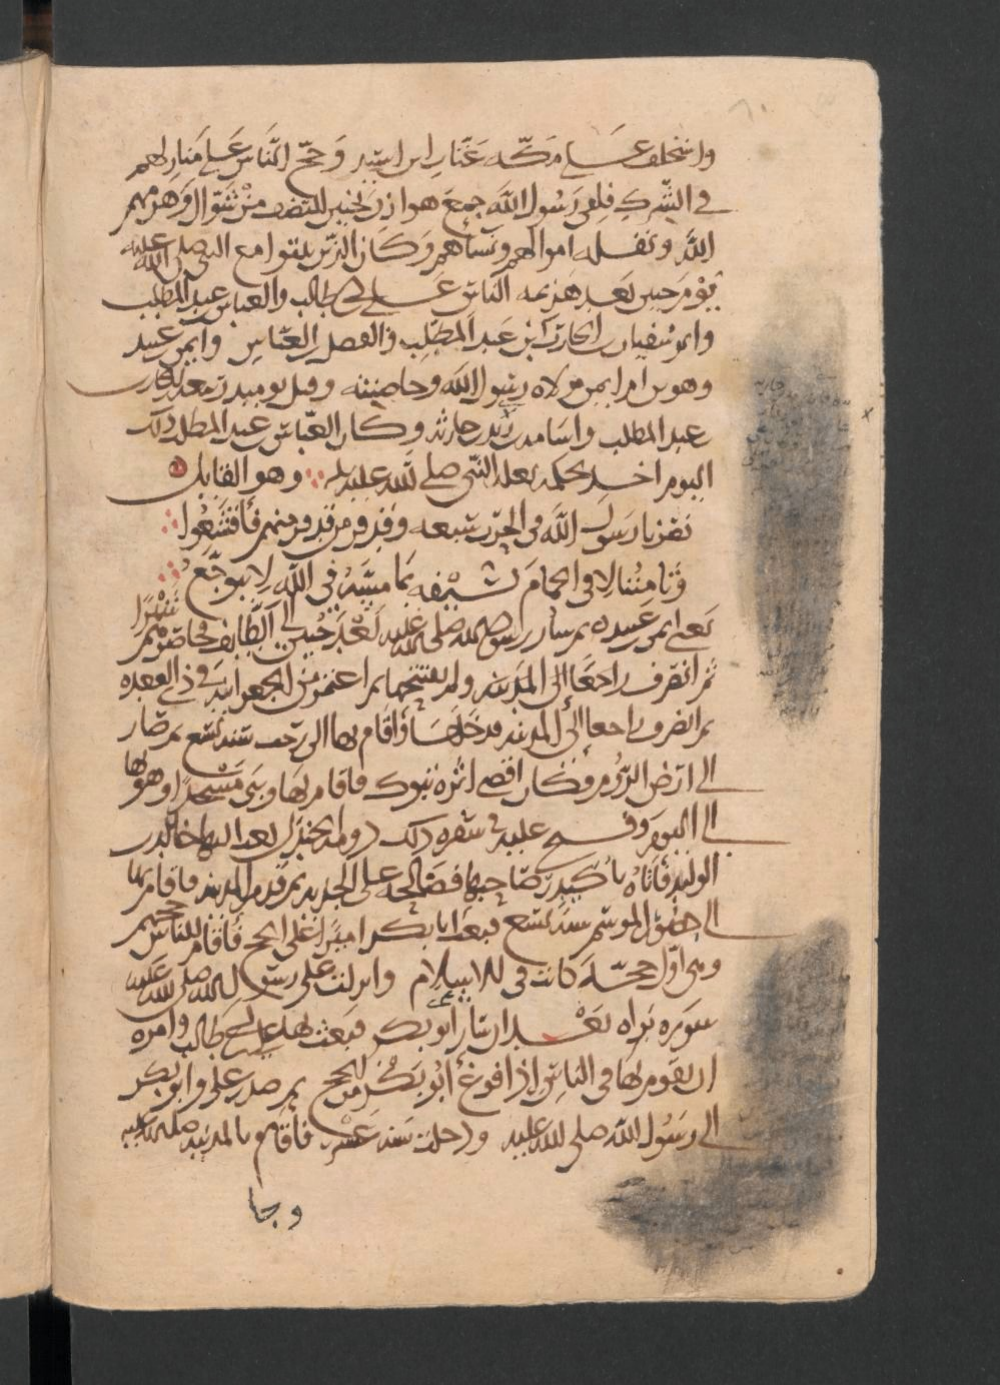 واستخلف على مكة عتاب ابن اسيد وحج الناس على منازلهم
في الشرك فلقى رسول الله جمع هوازن بحنين للنصف من شوال وهزمهم
الله ونفله اموالهم ونساهم وكان الذين بقوا مع النبي صلى الله عليه
يوم حنين بعد هزيمه الناس علي بن ابي طالب والعباس بن عبد المطلب
وابو سفيان بن الحارث ابن عبد المطلب والفضل بن العباس وايمن بن عبيد
وهو بن ام ايمن مولاه رسول الله وحاضنته وقتل يوميذ ربيعه بن الحارث بن
عبد المطلب واسامه بن زيد بن حارثه وكان العباس بن عبد المطلب ذلك
اليوم اخذ بحكمه بغله النبي صلى الله عليه وهو القايل
نصرنا رسول الله في الحرب سبعه وقد فر من قد فر منهم فاقشعوا
وثامننا لاقى الحمام بسيفه بما مسه في الله لا يتوجع
يعني ايمن بن عبيد ثم سار رسول الله صلى الله عليه بعد حنين الى الطايف فحاصرهم شهرا
ثم انصرف راجعا الى المدينه ولم يفتتحها ثم اعتمر من الجعرانه في ذي القعده
ثم انصرف راجعا الى المدينه فدخلها واقام بها الى رجب سنه تسع ثم صار
الى ارض الروم فكان اقصى اثره تبوك فاقام بها وبنى مسجدا وهو بها
الى اليوم وفتح عليه في سفره ذلك دومة الجندل بعث اليها خالد بن
الوليد فاتاه باكيدر صاحبها فصالحه على الجزيه ثم قدم المدينه فاقام بها
الى حضور الموسم سنه تسع فبعث ابا بكر اميرا على الحج فاقام للناس حجهم
وهي اول حجة كانت في الاسلام وانزلت على رسول الله صلى الله عليه
سوره براه بعد ان سار ابو بكر فبعث بها مع علي بن ابي طالب وامره
ان يقوم بها في الناس اذا فرغ ابو بكر من الحج ثم صدر علي وابو بكر
الى رسول الله صلى الله عليه ودخلت سنه عشر فاقام بالمدينه صلى الله عليه
وجا